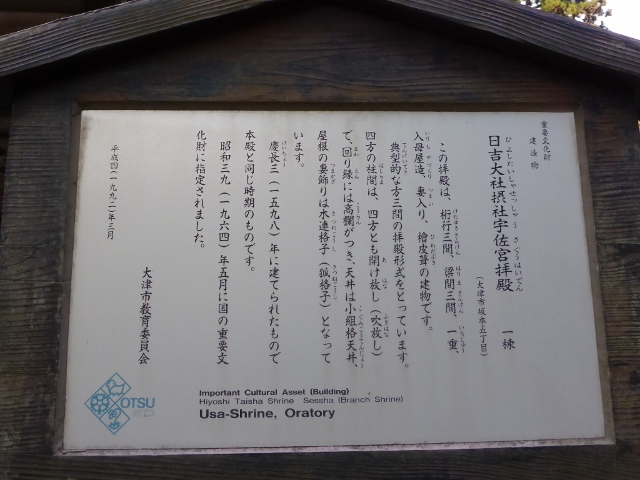 重要文化財
建造物
日吉大社摂社宇佐宮拝殿　一棟
（大津市坂本五丁目）
この拝殿は、桁行三間、梁間三間、一重、
入母屋造、妻入り、檜皮葺の建物です。
典型的な方三間の拝殿形式をとっています。
四方の柱間は、四方とも開け放し（吹放し）
で、回り縁には高欄がつき、天井は小組格天井、
屋根の妻飾りは木連格子（狐格子）となって
います。
慶長三（一五九八）年に建てられたもので
本殿と同じ時期のものです。
昭和三九（一九六四）年五月に国の重要文
化財に指定されました。
平成四（一九九二）年三月
大津市教育委員会
OTSU
Important Cultural Asset (Building)
Hiyoshi Taisha Shrine Sessha (Branch Shrine)
Usa-Shrine, Oratory